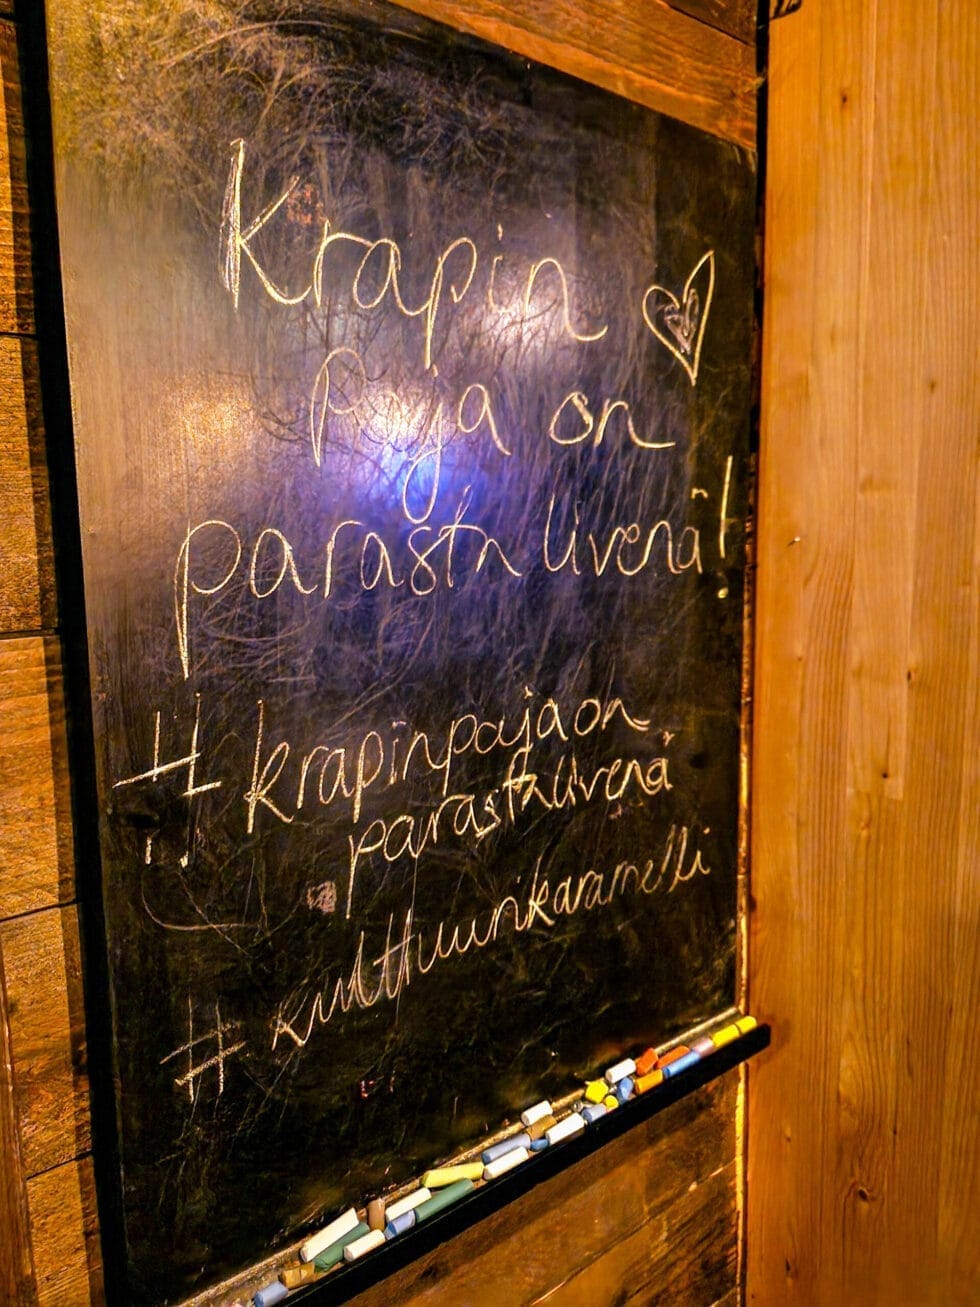 Krapin
Paja on
parasta livenä!
#krapinpajaon
parastalivenä
#kulttuurikaramelli